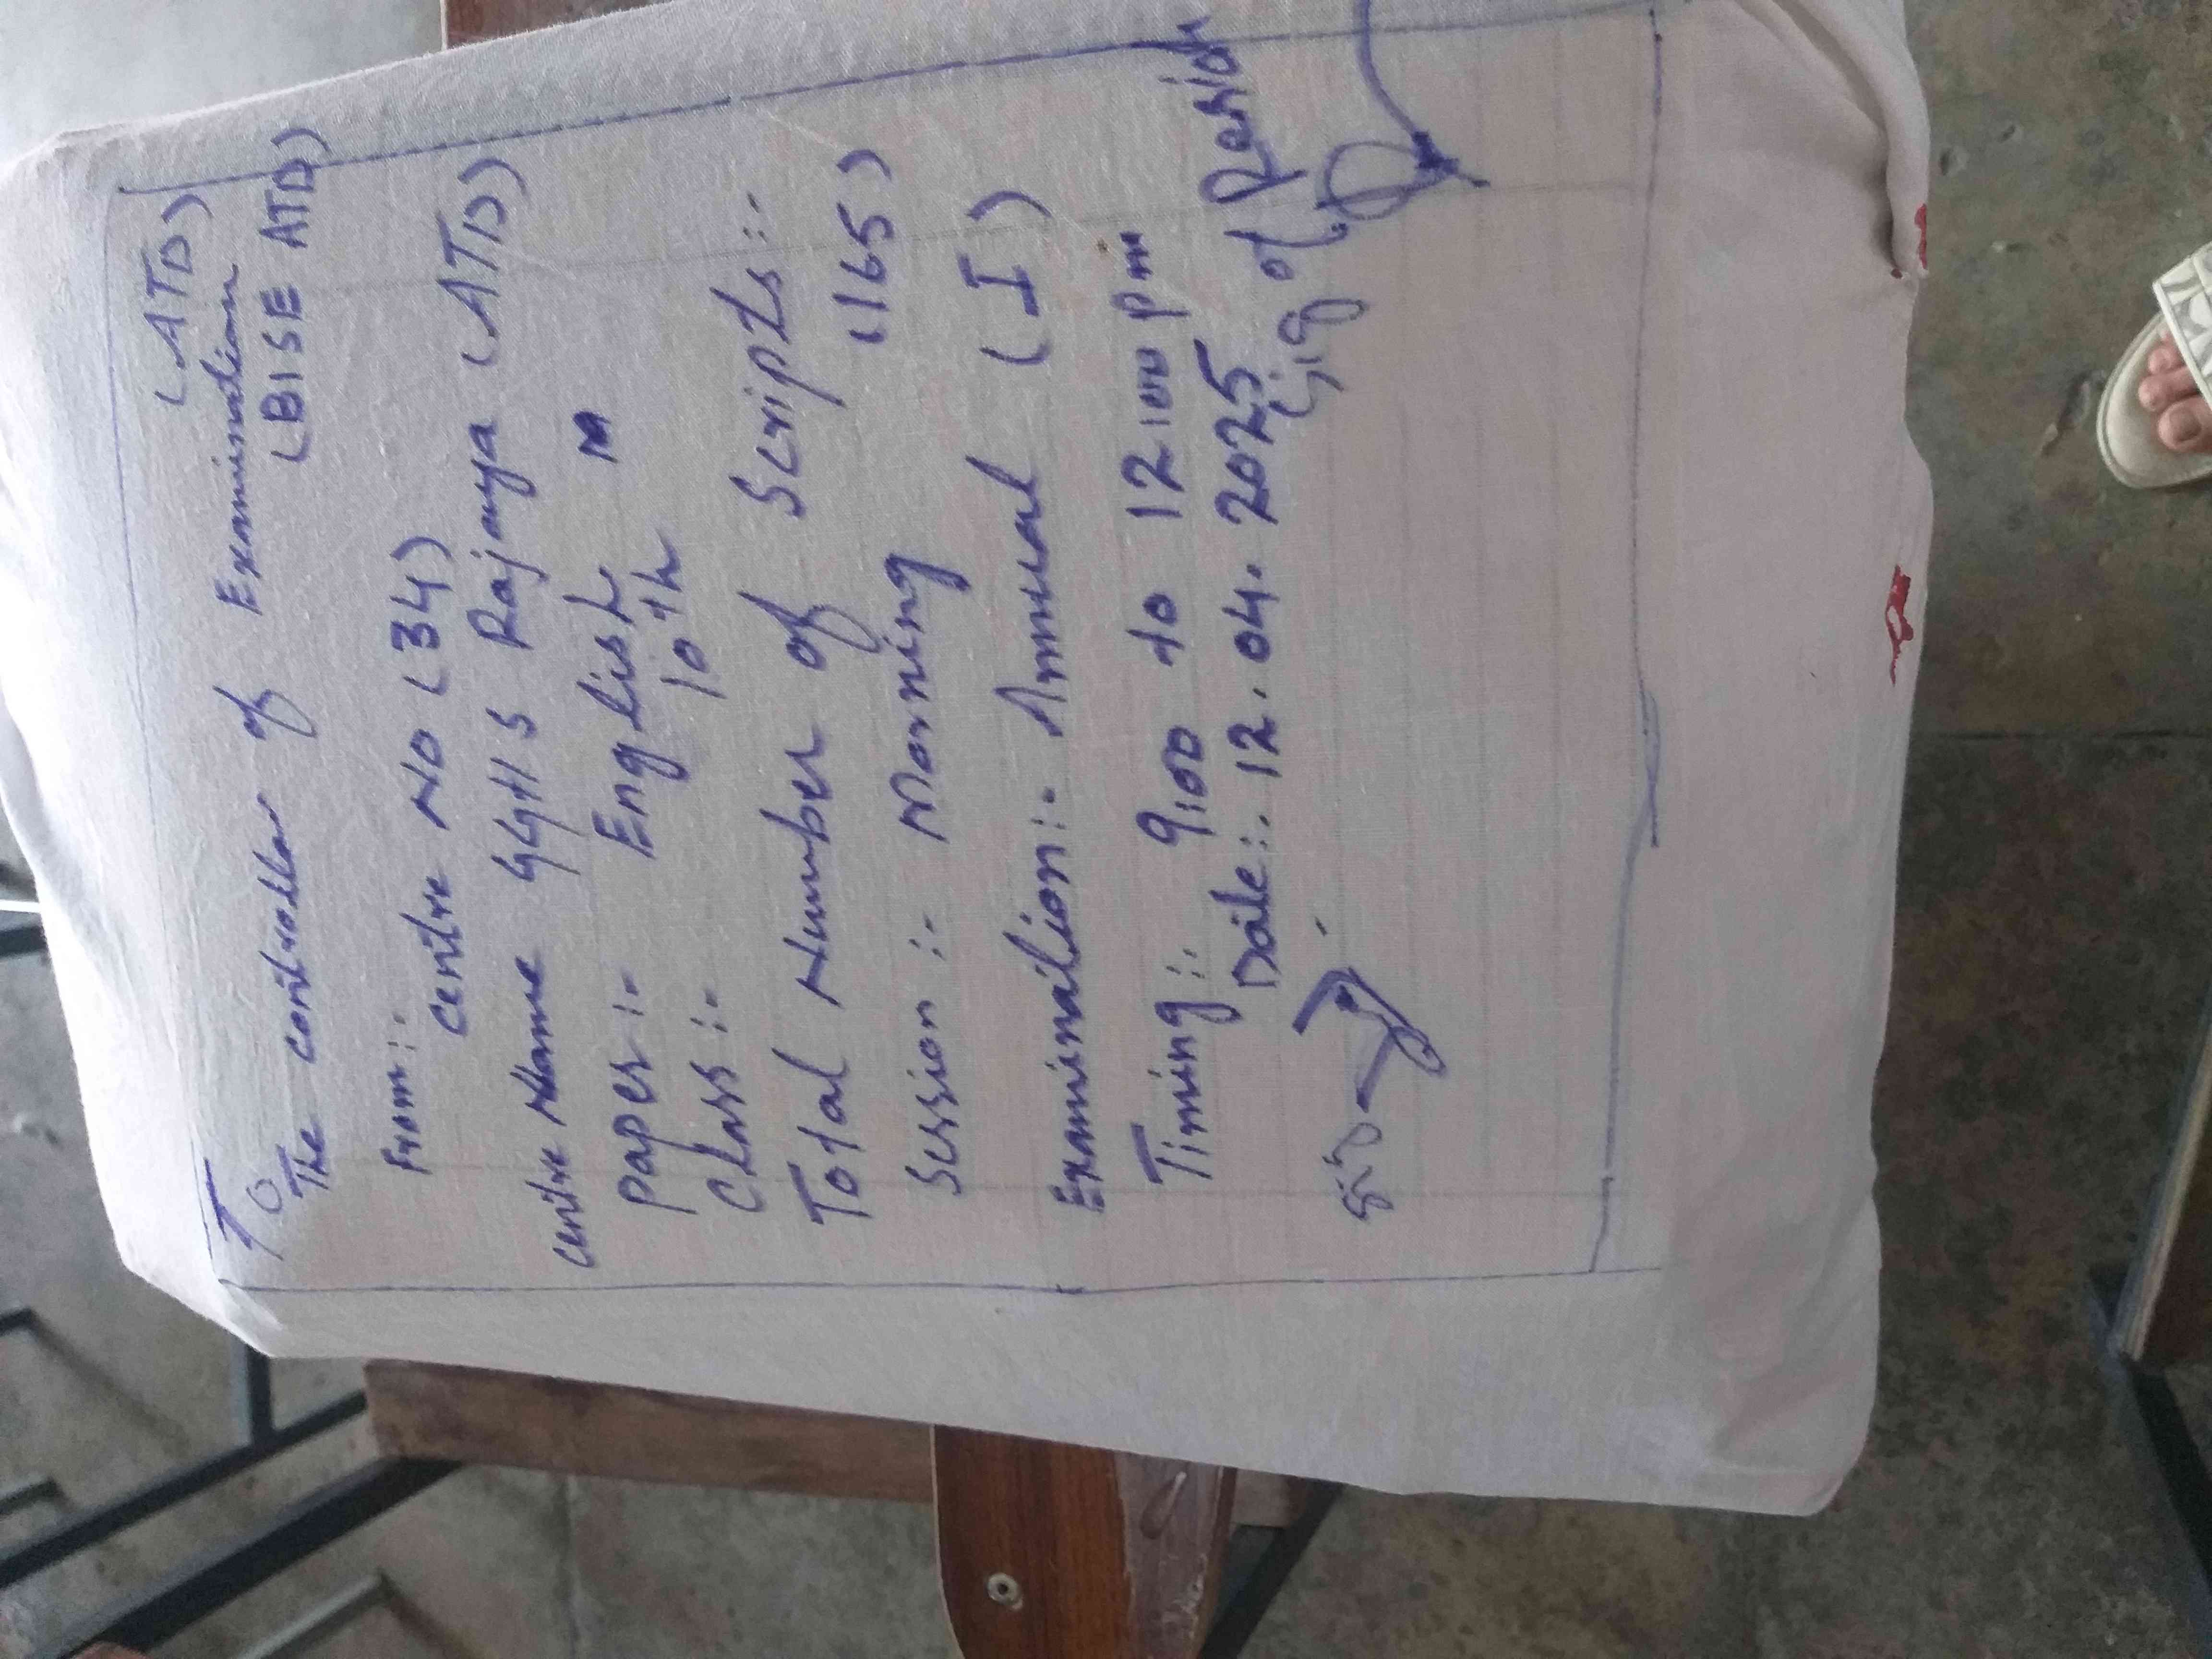 To (ATD)
The controllar of Examination
(BISE ATD)
From:-
centre No (34)
centre Name GGHS Rajoya (ATD)
Paper:- English
Class:- 10th
Total Number of Scripts:-
(165)
Session:- Morning
Examination:- Annual (I)
Timing:- 9:00 to 12:00 Pm
Date:- 12.04.2025
Sig of Resid